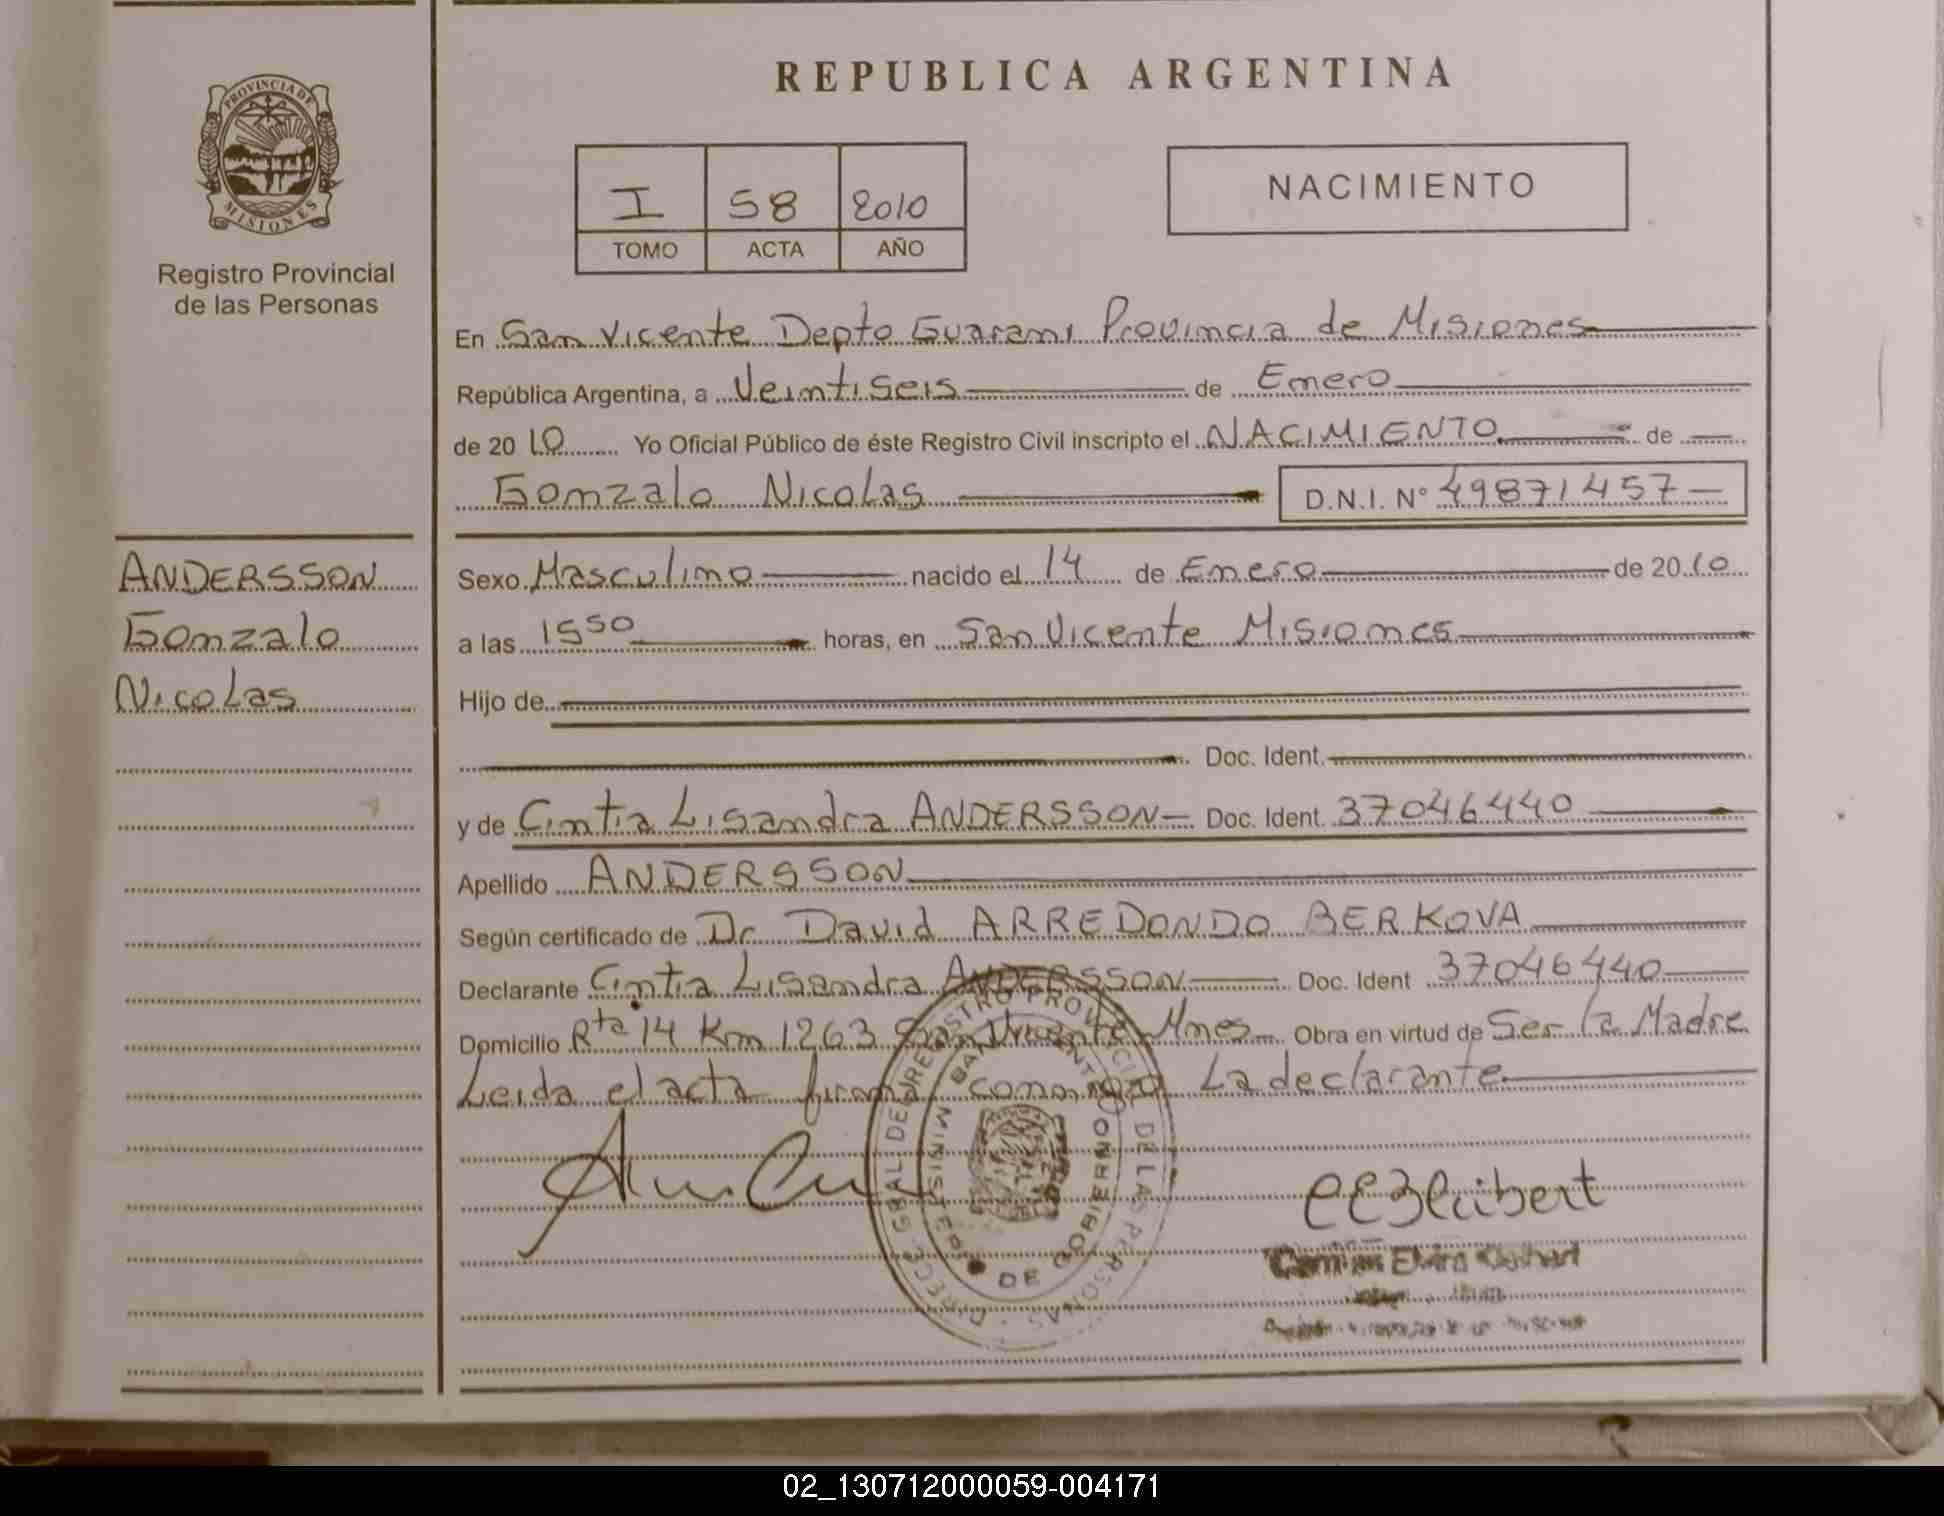 REPUBLICA ARGENTINA
PROVINCIA DE
MISIONES
Registro Provincial
de las Personas
I 58 2010
TOMO ACTA AÑO
NACIMIENTO
En San Vicente Depto Guarani Provincia de Misiones
República Argentina, a Veintiseis de Enero
de 2010 Yo Oficial Público de éste Registro Civil inscripto el NACIMIENTO de
Gonzalo Nicolas D.N.I. N° 49871457
ANDERSSON
Gonzalo
Nicolas
Sexo Masculino nacido el 14 de Enero de 2010
a las 1550 horas, en San Vicente Misiones
Hijo de
Doc. Ident.
y de Cintia Lisandra ANDERSSON Doc. Ident. 37046440
Apellido ANDERSSON
Según certificado de Dr David ARREDONDO BERKOVA
Declarante Cintia Lisandra ANDERSSON Doc. Ident 37046440
Domicilio Rta 14 Km 1263 San Vicente Mnes Obra en virtud de Ser la Madre
Leida el acta firma conmigo La declarante
REGISTRO PROVINCIAL DE LAS PERSONAS
DE GOBIERNO
02_130712000059-004171